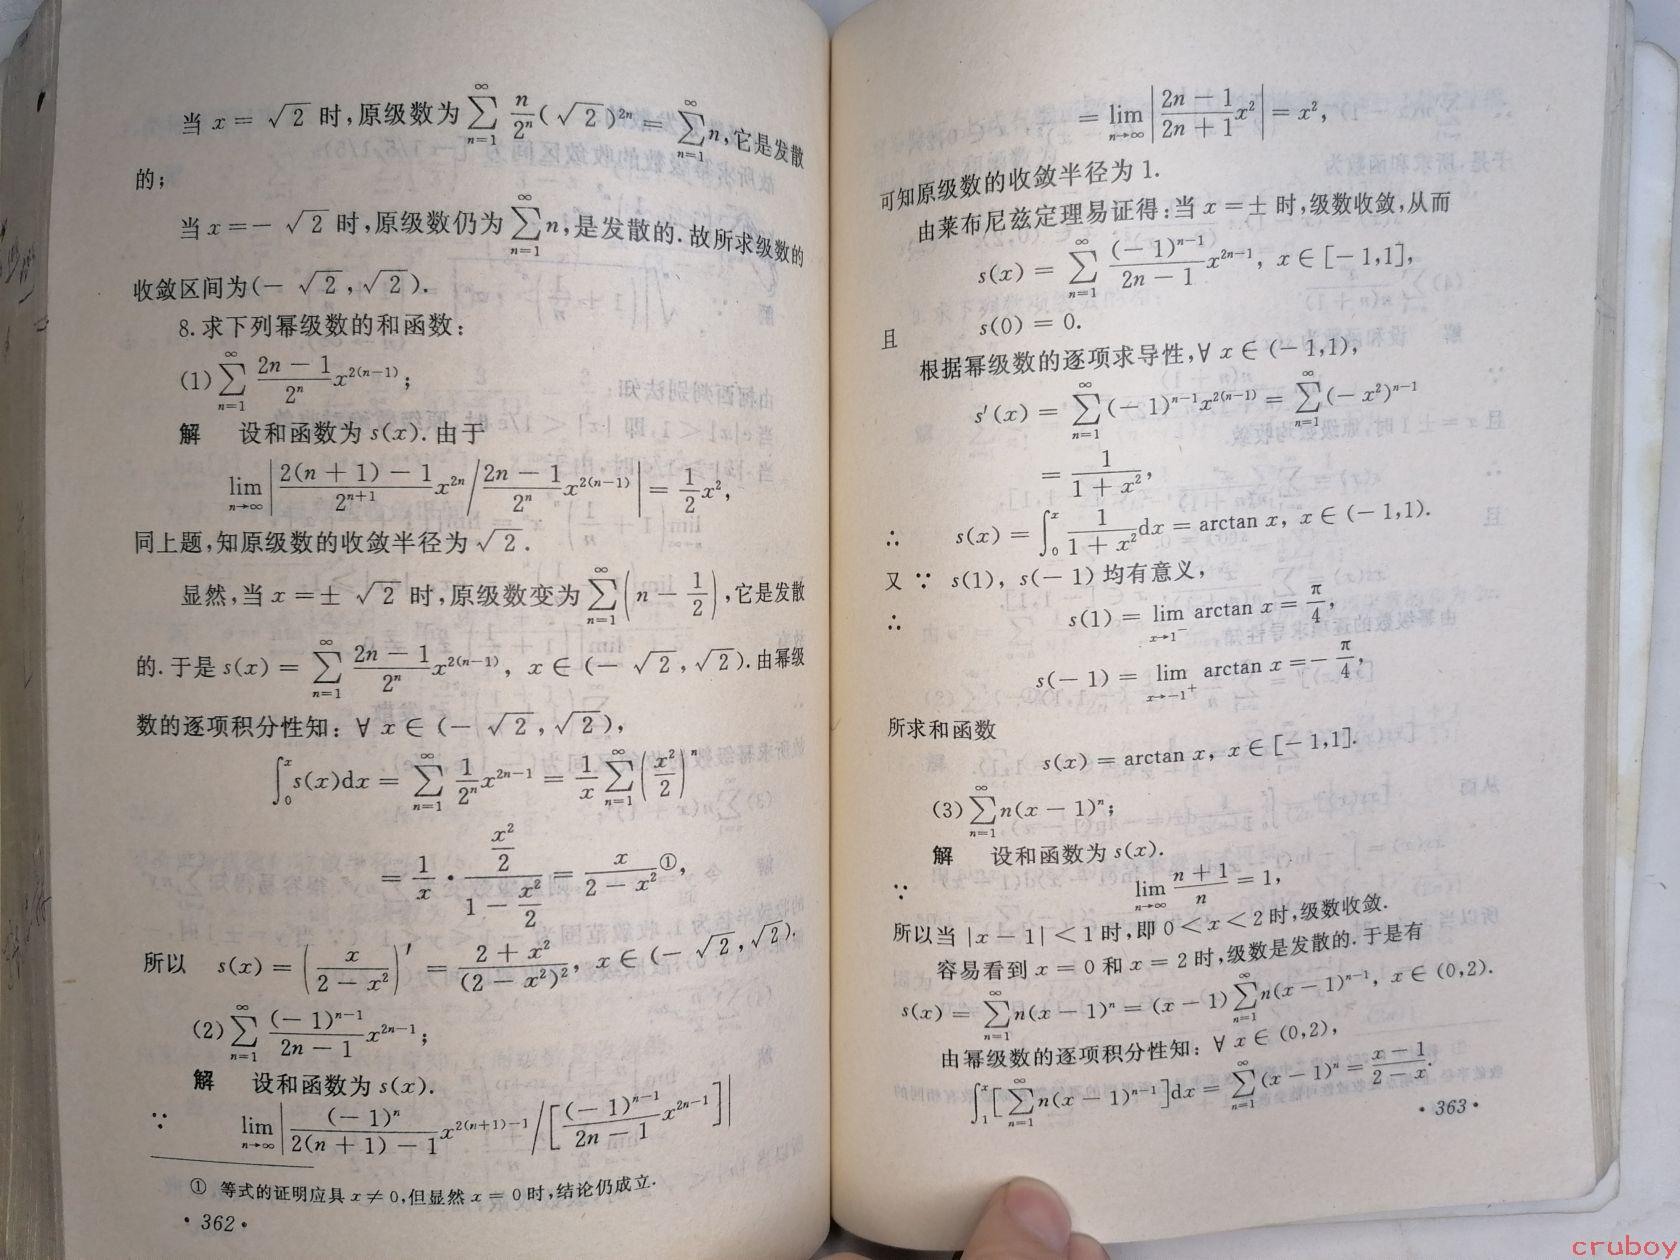 当 x = √2 时,原级数为 ∑_{n=1}^{∞} n/2ⁿ (√2)²ⁿ = ∑_{n=1}^{∞} n,它是发散
的;
当 x = − √2 时,原级数仍为 ∑_{n=1}^{∞} n,是发散的.故所求级数的
收敛区间为(− √2, √2).
8.求下列幂级数的和函数:
(1) ∑_{n=1}^{∞} (2n − 1)/2ⁿ x^{2(n−1)};
解 设和函数为 s(x).由于
lim_{n→∞} | (2(n + 1) − 1)/2^{n+1} x^{2n} / (2n − 1)/2ⁿ x^{2(n−1)} | = 1/2 x²,
同上题,知原级数的收敛半径为 √2.
显然,当 x = ± √2 时,原级数变为 ∑_{n=1}^{∞} (n − 1/2),它是发散
的.于是 s(x) = ∑_{n=1}^{∞} (2n − 1)/2ⁿ x^{2(n−1)}, x ∈ (− √2, √2).由幂级
数的逐项积分性知: ∀ x ∈ (− √2, √2),
∫₀ˣ s(x)dx = ∑_{n=1}^{∞} 1/2ⁿ x^{2n−1} = 1/x ∑_{n=1}^{∞} (x²/2)ⁿ
= 1/x · (x²/2)/(1 − x²/2) = x/(2 − x²)①,
所以 s(x) = (x/(2 − x²))′ = (2 + x²)/(2 − x²)², x ∈ (− √2, √2).
(2) ∑_{n=1}^{∞} (−1)^{n−1}/(2n − 1) x^{2n−1};
解 设和函数为 s(x).
∵ lim_{n→∞} | (−1)ⁿ/(2(n + 1) − 1) x^{2(n+1)−1} / [(−1)^{n−1}/(2n − 1) x^{2n−1}] |
① 等式的证明应具 x ≠ 0,但显然 x = 0 时,结论仍成立.
· 362 ·
= lim_{n→∞} | (2n − 1)/(2n + 1) x² | = x²,
可知原级数的收敛半径为 1.
由莱布尼兹定理易证得:当 x = ± 时,级数收敛,从而
s(x) = ∑_{n=1}^{∞} (− 1)^{n−1}/(2n − 1) x^{2n−1}, x ∈ [− 1,1],
且 s(0) = 0.
根据幂级数的逐项求导性,∀ x ∈ (− 1,1),
s′(x) = ∑_{n=1}^{∞} (− 1)^{n−1} x^{2(n−1)} = ∑_{n=1}^{∞} (− x²)^{n−1}
= 1/(1 + x²),
∴ s(x) = ∫₀ˣ 1/(1 + x²) dx = arctan x, x ∈ (− 1,1).
又 ∵ s(1), s(− 1) 均有意义,
∴ s(1) = lim_{x→1⁻} arctan x = π/4,
s(− 1) = lim_{x→−1⁺} arctan x = − π/4,
所求和函数
s(x) = arctan x, x ∈ [− 1,1].
(3) ∑_{n=1}^{∞} n(x − 1)ⁿ;
解 设和函数为 s(x).
∵ lim_{n→∞} (n + 1)/n = 1,
所以当 |x − 1| < 1 时,即 0 < x < 2 时,级数收敛.
容易看到 x = 0 和 x = 2 时,级数是发散的.于是有
s(x) = ∑_{n=1}^{∞} n(x − 1)ⁿ = (x − 1) ∑_{n=1}^{∞} n(x − 1)^{n−1}, x ∈ (0,2).
由幂级数的逐项积分性知: ∀ x ∈ (0,2),
∫₁ˣ [∑_{n=1}^{∞} n(x − 1)^{n−1}]dx = ∑_{n=1}^{∞} (x − 1)ⁿ = (x − 1)/(2 − x).
· 363 ·
cruboy